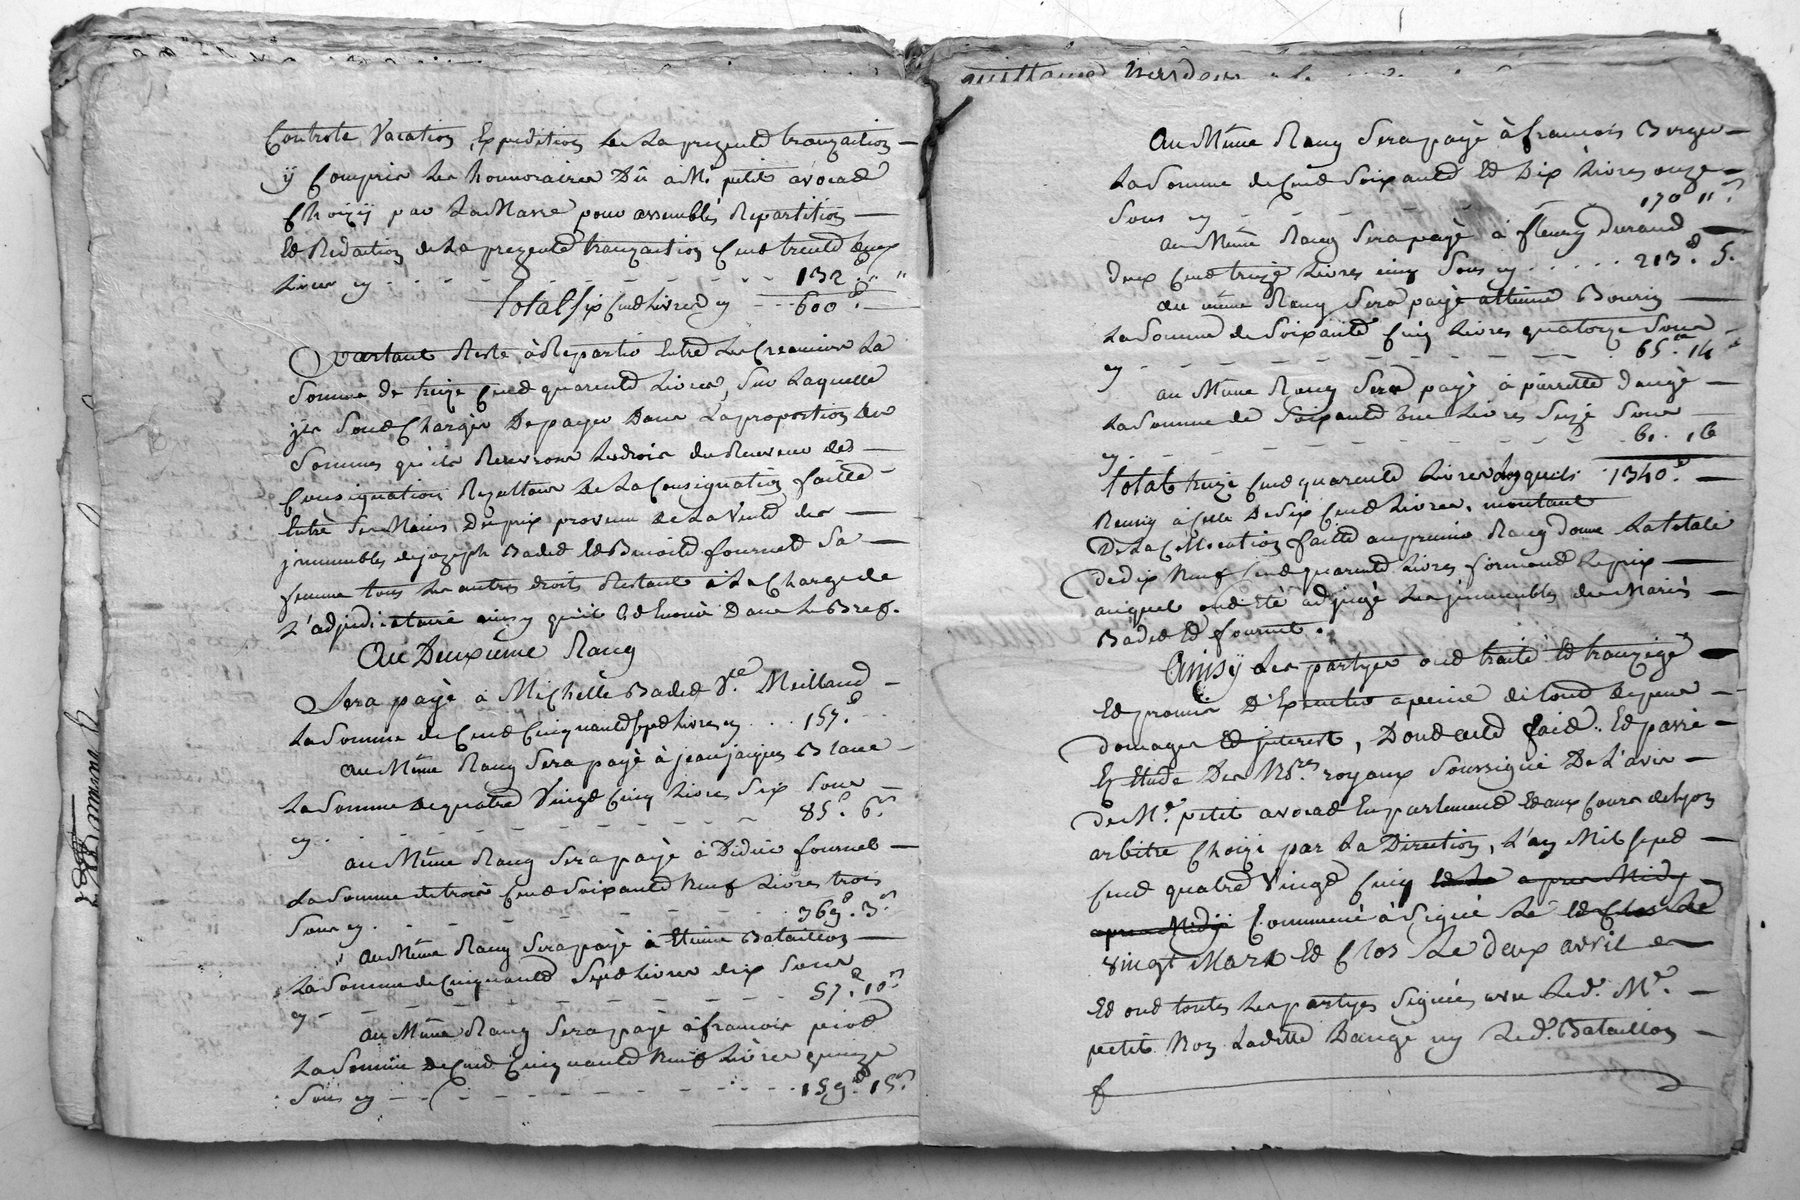 Controle Vacation, Expedition de La prezente tranzaition
y Compris Les honnoraires Dû a Me. petit avocad
Choizy par La Masse pour assemblés Repartition
Et Redaction de La prezente tranzaction Cent trente deux
Livres cy 132 " "
Total Six Cent Livres cy 600
Partant Reste à Repartir Entre Les Creanciers La
Somme de treize Cent quarente Livres, Sur Laquelle
jls Sont Chargés De payer Dans La proportion des
Sommes qu'ils Recevrons Les droits du Receveur des
Consignation Rezultans de La Consignation faitte
Entre Ses Mains Du prix provenu de La Vente des
jmmeubles de jozeph Badet Et Benoite fournel Sa
femme tous Les autres droits Restant à La Charge de
L'adjudicataire ainsy qu'il Est Enoncé Dans Le Bref.
Au Deuxieme Rang
Sera payé a Michelle Badet Ve. Meilland
La Somme de Cent Cinquante sept Livres cy 157
Au Même Rang Sera payé à jean jaques Blanc
La Somme de quatre Vingt Cinq Livres Six Sous
cy 85. 6s
au Même Rang Sera payé à Didier fournel
La Somme de trois Cent Soixante Neuf Livres trois
Sous cy 369. 3s
au Même Rang Sera payé à Etienne Bataillon
La Somme de Cinquante Sept Livres dix Sous
cy 57. 10s
au Même Rang Sera payé à francois
La Somme de Cent Cinquante Neuf Livres quinze
Sous cy 159. 15s
guillaume
Au Même Rang Sera payé à francois Berger
La Somme de Cent Soixante Et Dix Livres onze
Sous cy 170 11s
au Même Rang Sera payé à fleury Durand
deux Cent treize Livres cinq Sous cy 213. 5.
au même Rang Sera payé a Etienne Bourin
La Somme de Soixante Cinq Livres quatorze Sous
cy 65. 14
au Même Rang Sera payé à pierrette Dangé
La Somme de Soixante une Livres Seize Sous
cy 61. 16
Total treize Cent quarente Livres Lesquels 1340
Reunis à Celle De Six Cent Livres, montant
De La Collocation faitte au premier Rang donne La totale
de dix Neuf Cent quarente Livres formant Le prix
auquel ont été adjugé Les jmmeubles des Mariés
Badet Et fournel.
Ainsÿ Les partyes ont traité Et tranzigé
Et promis D'Executer a peine de tout depens
domages Et jnterest, Dont acte fait Et passé
Es Etude Des Nores. royaux Soussigné De L'avis
de Me. petit avocat En parlement Et aux Cours de Lyon
arbitre Choizi par La Direction, L'an Mil sept
Cent quatre Vingt Cinq et Le apres Midy
apres Midy Commencé à Signé Le et Clos Le
vingt Mars Et Clos Le deux avril
Et ont toutes Les partyes Signées avec Led. Me.
petit Non Laditte Dangé ny Led. Bataillon